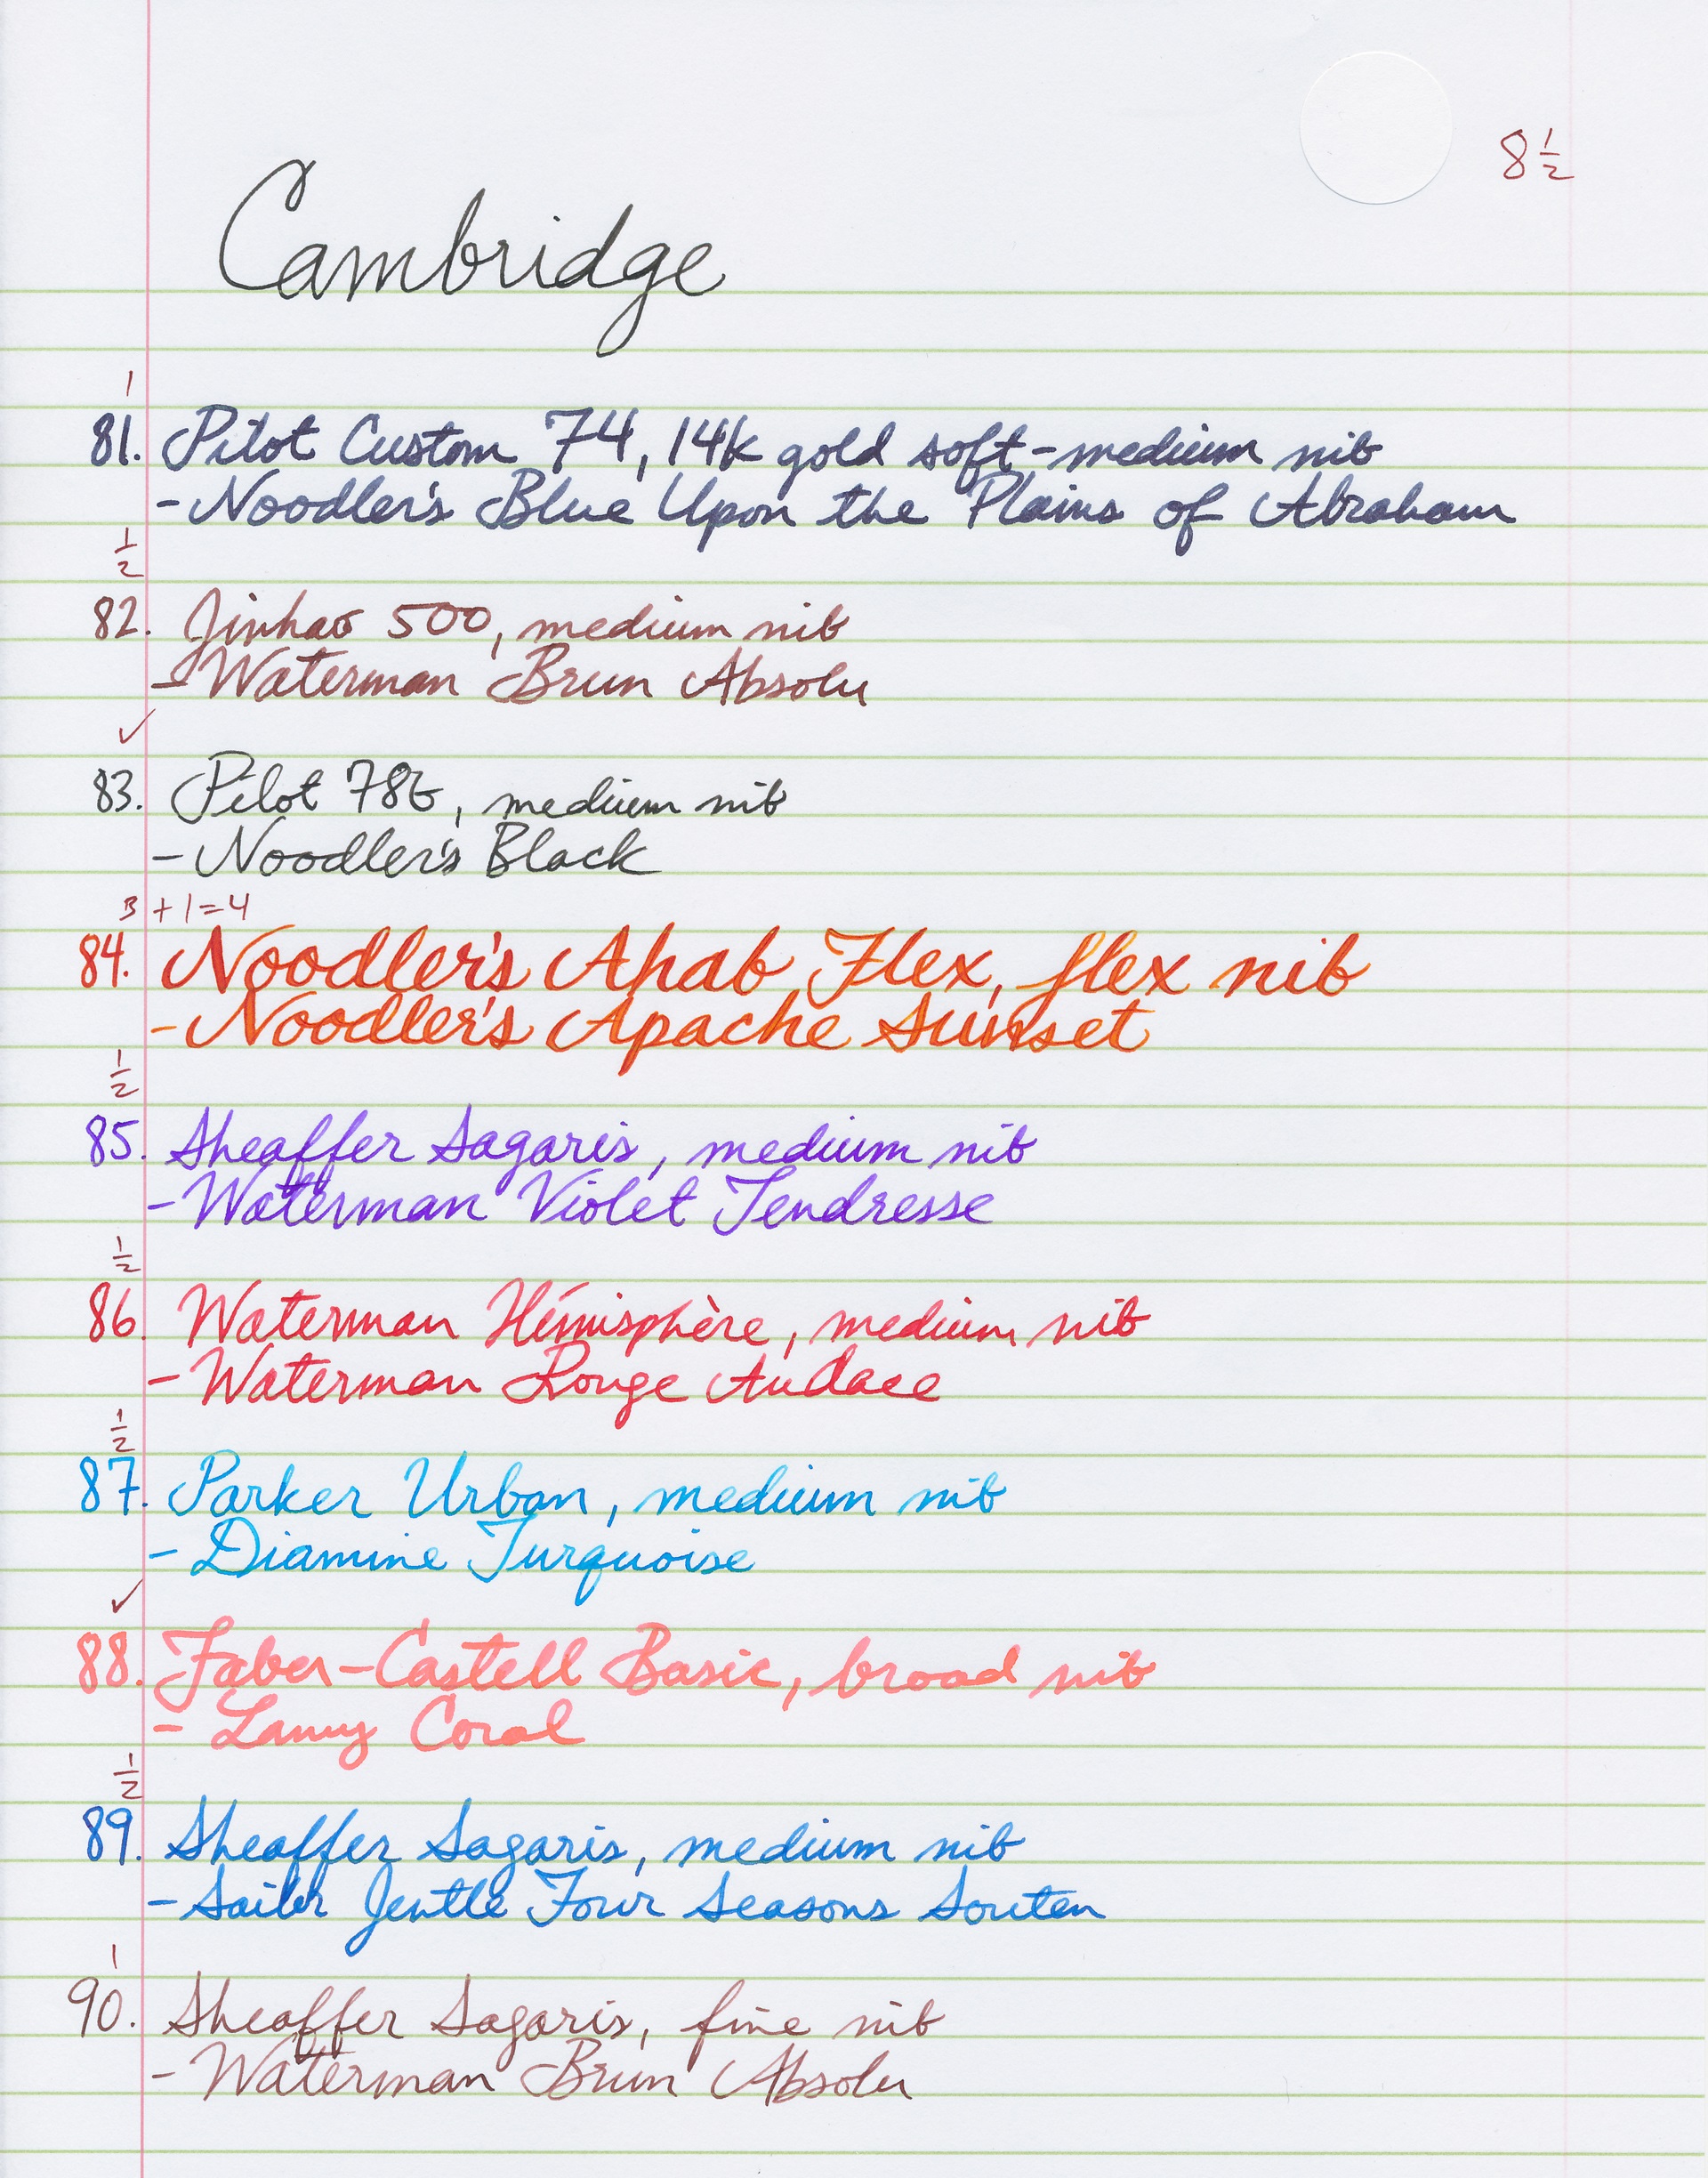 8 1/2
Cambridge
1
81. Pilot Custom 74, 14k gold soft-medium nib
- Noodler's Blue Upon the Plains of Abraham
1/2
82. Jinhao 500, medium nib
- Waterman Brun Absolu
✓
83. Pilot 78G, medium nib
- Noodler's Black
3 + 1 = 4
84. Noodler's Ahab Flex, flex nib
- Noodler's Apache Sunset
1/2
85. Sheaffer Sagaris, medium nib
- Waterman Violet Tendresse
1/2
86. Waterman Hémisphère, medium nib
- Waterman Rouge Audace
1/2
87. Parker Urban, medium nib
- Diamine Turquoise
✓
88. Faber-Castell Basic, broad nib
- Lamy Coral
1/2
89. Sheaffer Sagaris, medium nib
- Sailor Jentle Four Seasons Souten
1
90. Sheaffer Sagaris, fine nib
- Waterman Brun Absolu